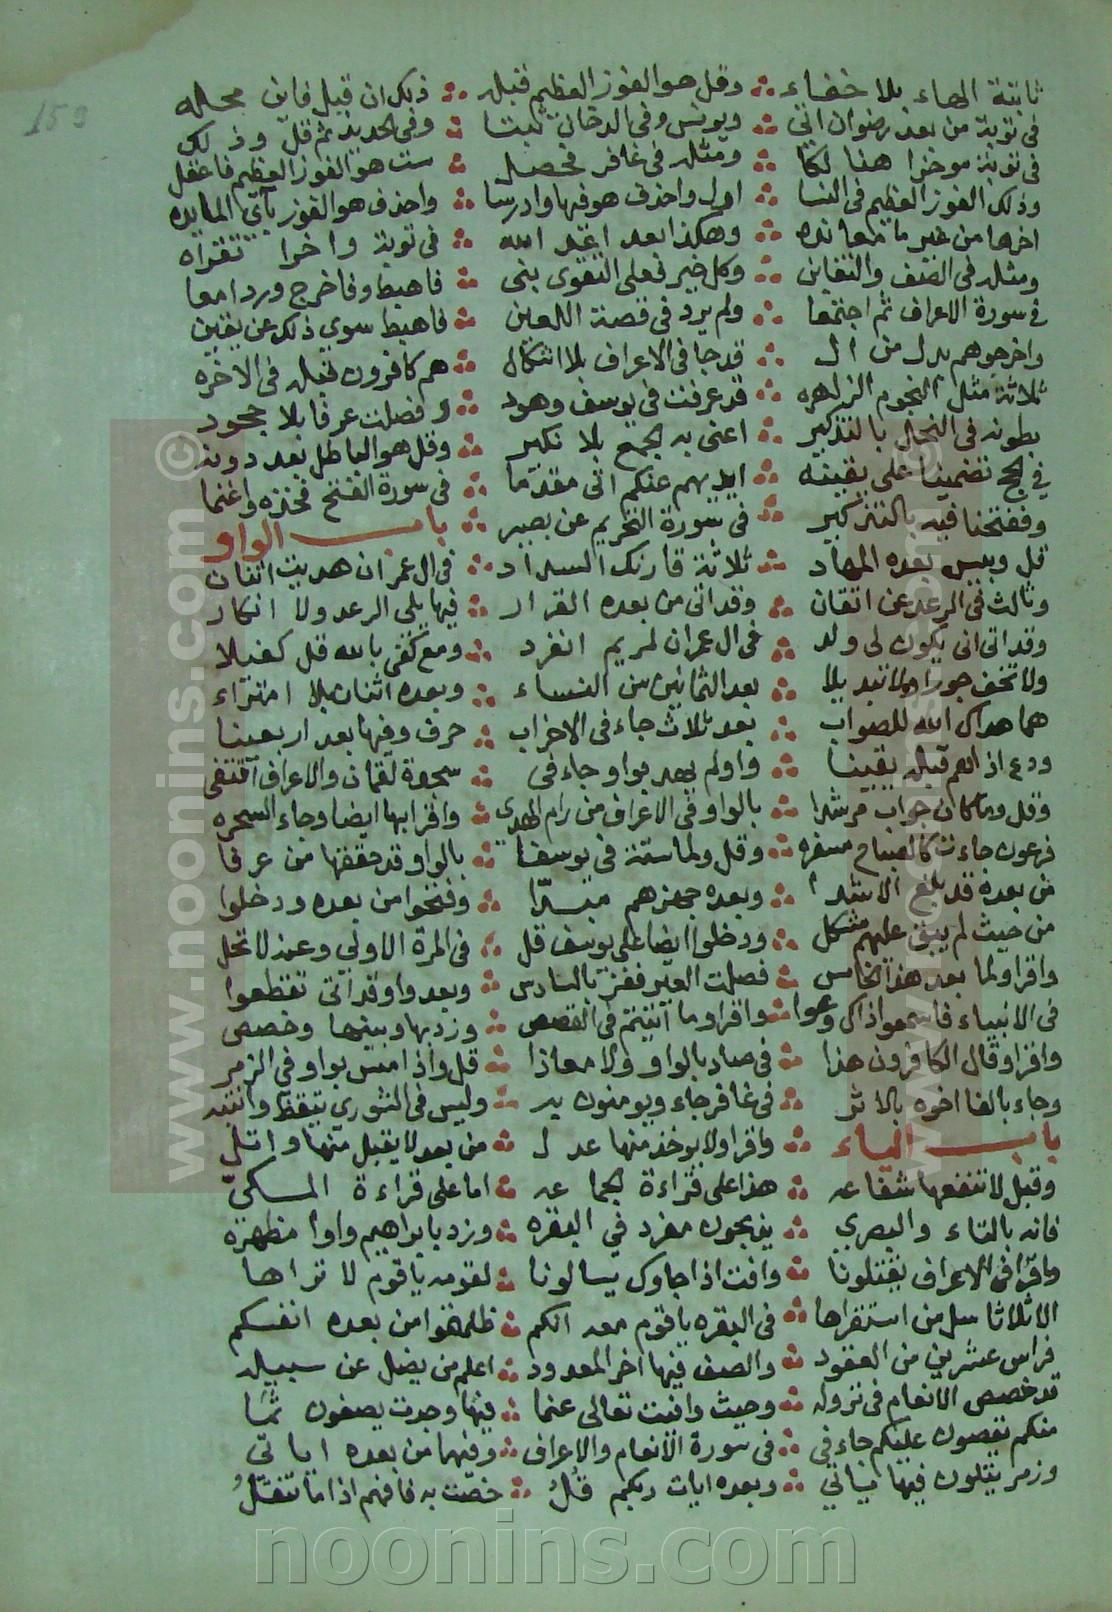 ثابتة الهاء بلا خفاء ∴ وقل هو الفوز العظيم قبله ∴ ذلك ان قبل فاين محله
159
في توبة من بعد رضوان اتي ∴ ويونس وفي الدخان ثبتا ∴ وفي الحديد ثم قل وذلك
في توبة موخرا هنا لكا ∴ ومثله في غافر فحصل ∴ ست هو الفوز العظيم فاعقل
وذلك الفوز العظيم في النسا ∴ اول واحذف هو فيها وادرسا ∴ واحذف هو الفوز بآي المايده
اخرها من غير ما معانده ∴ وهكذا بعد اعد الله ∴ في توبة واخرا تقراه
ومثله في الصف والتغابن ∴ وكل خير فعلى التقوى بني ∴ فاهبط وفاخرج وردا معا
في سورة الاعراف ثم اجتمعا ∴ ولم يرد في قصة اللعين ∴ فاهبط سوي ذلك عن يقين
واخرجوهم بدل من ال ∴ قد جا في الاعراف بلا اشكال ∴ هم كافرون قبله في الاخره
ثلاثة مثل النجوم الزاهره ∴ قد عرفت في يوسف وهود ∴ وفصلت عرفا بلا جحود
بطونه في النحل بالتذكير ∴ اعني به الجمع بلا نكير ∴ وقل هو الباطل بعد دونه
في الحج تضمينا على يقينه ∴ ايديهم عنكم اتى مقدما ∴ في سورة الفتح فخذه واغنما
وفنفخنا فيه بالتذكير ∴ في سورة التحريم عن بصير ∴ باب الواو
قل وبيس بعده المهاد ∴ ثلاثة قارنك السداد ∴ في ال عمران هديت اثنان
وثالث في الرعد عن اتقان ∴ وقد اتى من بعده القرار ∴ فيها يلي الرعد ولا انكار
وقد اتى انى يكون لي ولد ∴ في ال عمران لمريم انفرد ∴ ومع كفى بالله قل كفيلا
ولا تخف جورا ولا تبديلا ∴ بعد الثمانين من النساء ∴ وبعده اثنان بلا امتراء
هما هداك الله للصواب ∴ بعد ثلاث جاء في الاحزاب ∴ حرف وفيها بعد اربعينا
ودع اذاهم قبله يقينا ∴ واولم يهد بواو جاء في ∴ سجدة لقمان والاعراف اقتفى
وقل وما كان جواب مرشدا ∴ بالواو في الاعراف من رام الهدى ∴ واقرا بها ايضا وجاء السحره
فرعون جاءت كالصباح مسفره ∴ وقل ولما ستة في يوسفا ∴ بالواو قد حققها من عرفا
من بعده قد بلغ الاشدا ∴ وبعده جهزهم مبدا ∴ وفتحوا من بعده ودخلوا
من حيث لم يبق عليهم مشكل ∴ ودخلوا ايضا على يوسف قل ∴ في المرة الاولى وعند لا تحل
واقرا ولما بعد هذا الخامس ∴ فصلت العير ففز بالسادس ∴ وبعد واو قد اتى تقطعوا
في الانبياء فاسمعوا ذاك وعوا ∴ واقرا وما اتيتم في القصص ∴ وزد بها وبينها وخصص
واقرا وقال الكافرون هذا ∴ في صاد بالواو ولا معاذا ∴ قل واذا مس بواو في الزمر
وجاء بالفا اخره بالاثر ∴ في غافر جاء ويومنون به ∴ وليس في الشورى تيقظ وانتبه
باب الياء ∴ واقرا ولا يوخذ منها عدل ∴ من بعد لا يقبل منها واتل
وقبل لا تنفعها شفاعه ∴ هذا على قراءة الجماعه ∴ اما على قراءة المكي
فانه بالتاء والبصري ∴ يذبحون مفرد في البقره ∴ وزد بابراهيم واوا مظهره
واقرا في الاعراف يقتلونا ∴ وافت اذا جاوك يسالونا ∴ لقومه ياقوم لا تراها
الا ثلاثا سل من استقراها ∴ في البقره ياقوم معه انكم ∴ ظلمتموا من بعده انفسكم
فراس عشرين من العقود ∴ والصف فيها اخر المعدود ∴ اعلم من يضل عن سبيله
قد خصص الانعام في نزوله ∴ وحيث وافيت تعالى عما ∴ فيها وجدت يصفون ثما
منكم يقصون عليكم جاء في ∴ في سورة الانعام والاعراف ∴ وفيهما من بعده اياتي
وزمر يتلون فيها ياتي ∴ وبعده ايات ربكم قل ∴ خصت به فافهم اذا ما تنقل
www.noonins.com ©
www.noonins.com ©
noonins.com